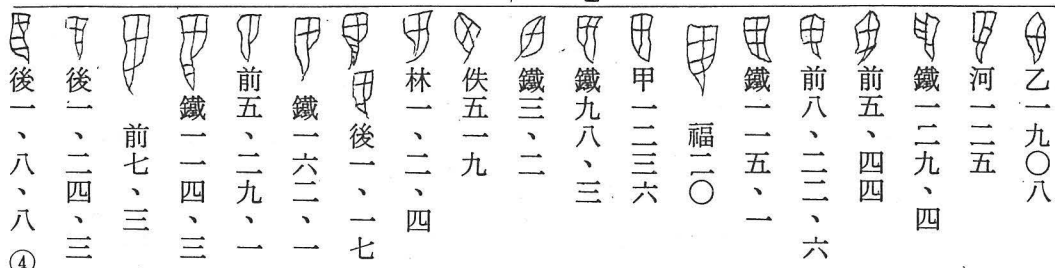 乙一九〇八
河一二五
鐵一二九、四
前五、四四
前八、二二、六
鐵一一五、一
福二〇
甲一二三六
鐵九八、三
鐵三、二
佚五一九
林一、二、四
後一、一七
鐵一六二、一
前五、二九、一
鐵一一四、三
前七、三
後一、二四、三
後一、八、八④